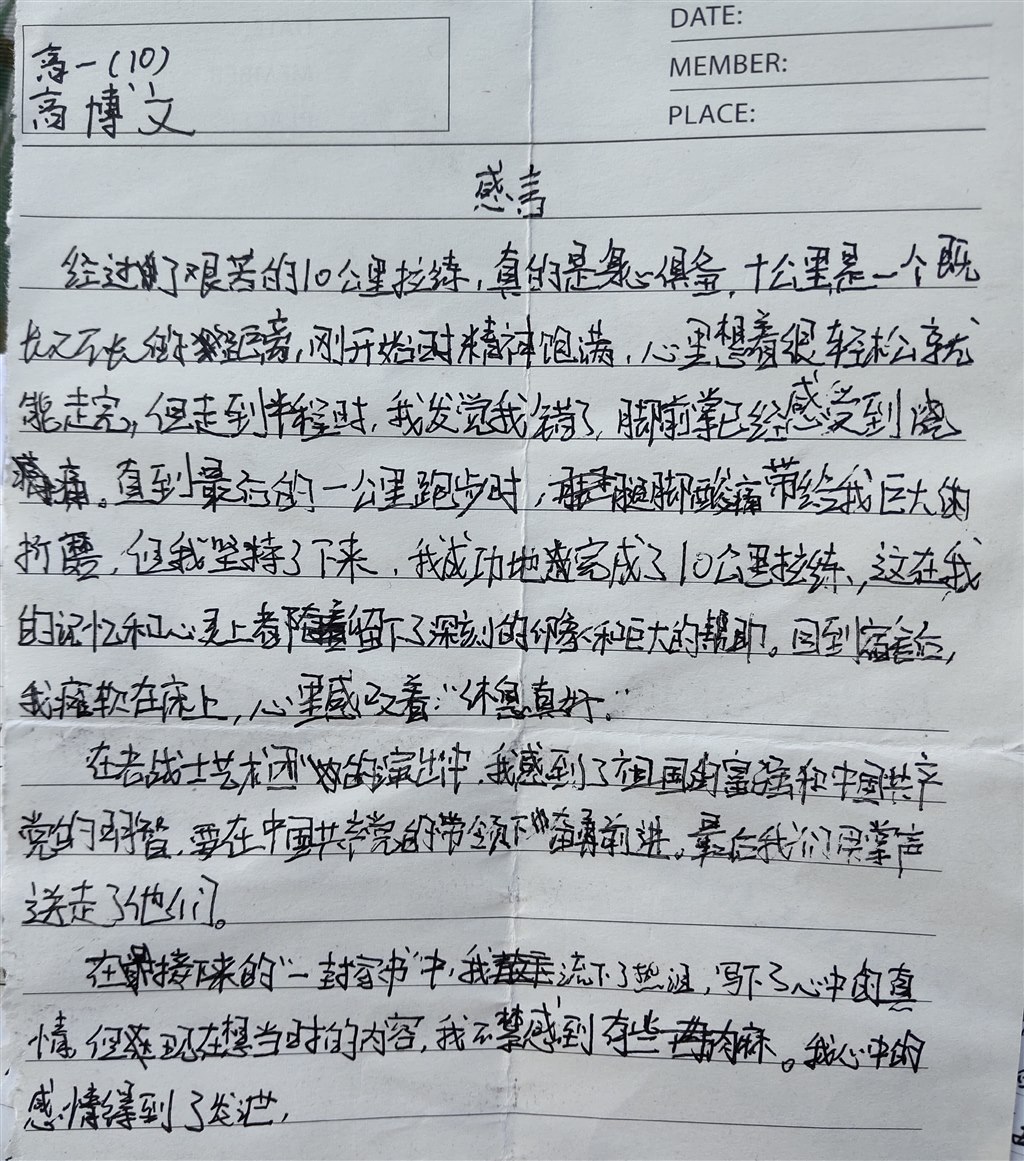 DATE:
MEMBER:
PLACE:
高一(10)
高博文
感言
经过了艰苦的10公里拉练,真的是身心俱备,十公里是一个既
长又不长的距离,刚开始时精神饱满,心里想着很轻松就
能走完,但走到半程时,我发觉我错了,脚前掌已经感受到烧
痛。直到最后的一公里跑步时,腿脚酸痛带给我巨大的
折磨,但我坚持了下来,我成功地完成了10公里拉练,这在我
的记忆和心灵上都留下了深刻的印象和巨大的帮助。回到宿舍后,
我瘫软在床上,心里感叹着:“休息真好。”
在老战士艺术团的演出中,我感到了祖国的富强和中国共产
党的明智,要在中国共产党的带领下奋勇前进。最后我们用掌声
送走了他们。
在接下来的“一封家书”中,我流下了热泪,写下了心中的真
情,但现在想当时的内容,我不禁感到有些肉麻。我心中的
感情得到了发泄,